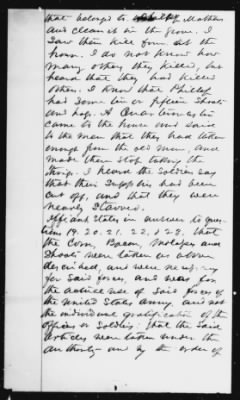 that belonged to Mathew
and cleaned it in the Grove. I
saw them kill four at the
house. I do not know how
many others they killed, but
heard that they had killed
others. I know that Phillip
had some ten or fifteen Shoats
and hogs. A Quartermaster
came to the house and said
to the men that they had taken
enough from the old man, and
made them stop taking the
things. I heard the Soldiers say
that their Supplies had been
cut off, and that they were
nearly starved.
Affiant States in answer to ques-
tion 19. 20. 21. 22. & 23. that
the Corn, Bacon, Molasses and
Shoats were taken as above
described, and were necessary
for said forces and were for
the actual use of said forces of
the United States Army, and not
the individual gratification of the
officers or Soldiers. That the said
articles were taken under the
authority and by the order of